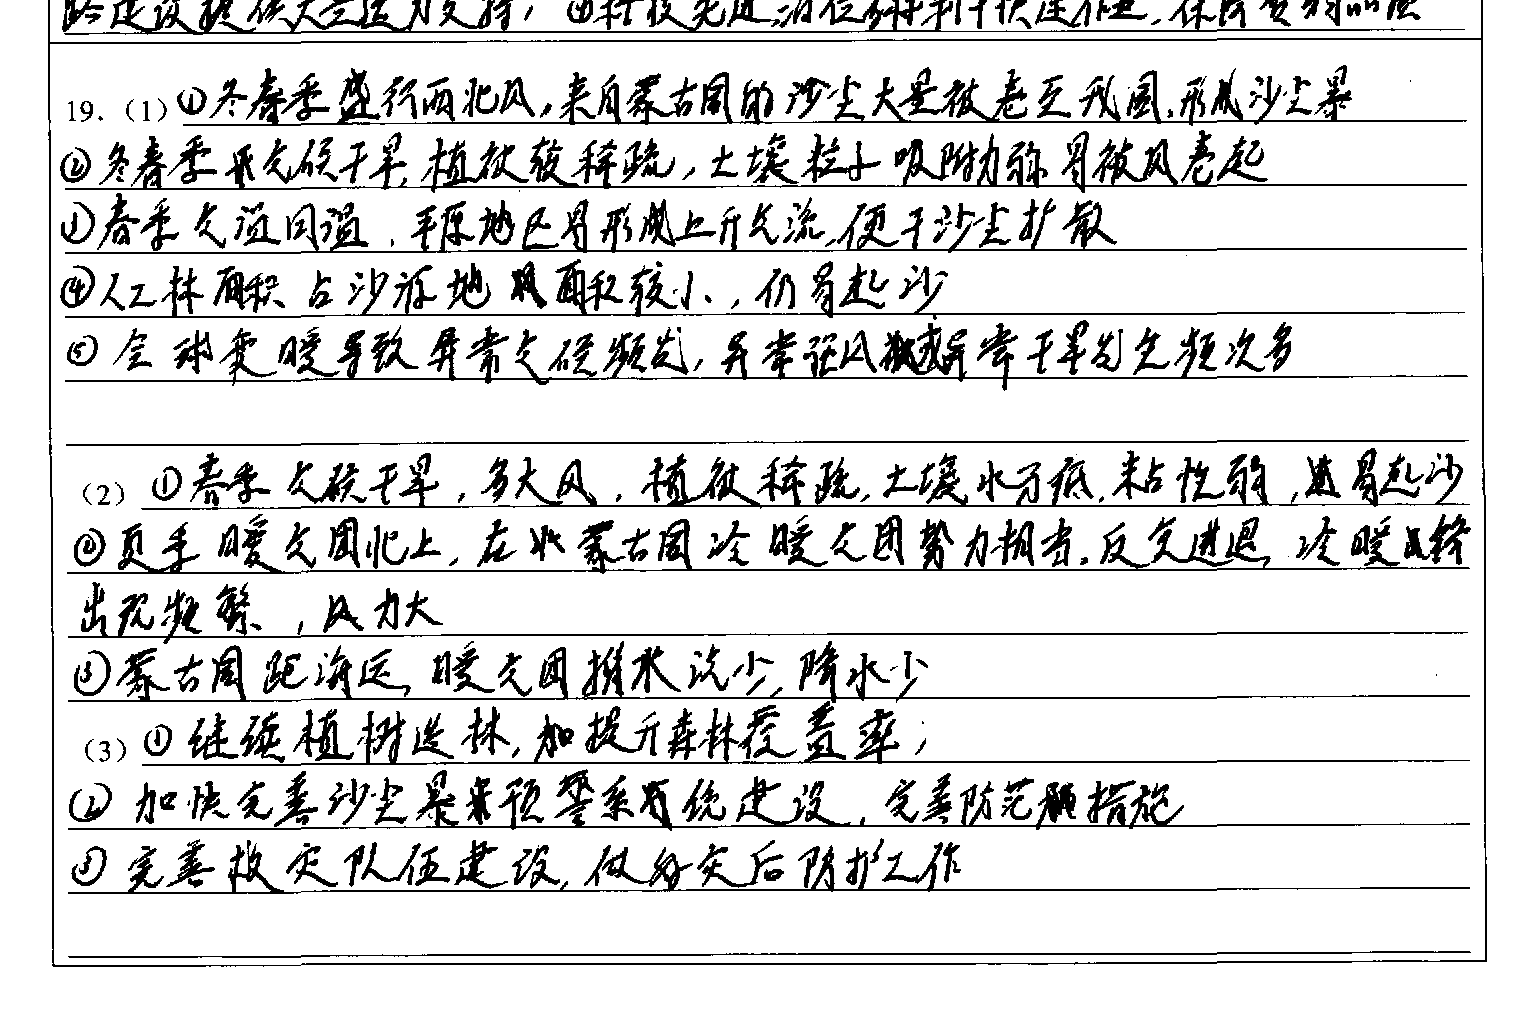 19.（1）①冬春季盛行西北风,来自蒙古国的沙尘大量被卷至我国,形成沙尘暴
②冬春季天气候干旱,植被较稀疏,土壤粒子吸附力弱易被风卷起
①春季气温回温,平原地区易形成上升气流,便于沙尘扩散
④人工林面积占沙源地面积较小,仍易起沙
⑤全球变暖导致异常气候频发,异常强风或异常干旱发生频次多
（2）①春季气候干旱,多大风,植被稀疏,土壤水分低,粘性弱,易起沙
②夏季暖气团北上,在北蒙古国冷暖气团势力相当,反复进退,冷暖锋
出现频繁,风力大
③蒙古国距海远,暖气团携水汽少,降水少
（3）①继续植树造林,加提升森林覆盖率;
②加快完善沙尘暴预警系统建设,完善防范措施
③完善救灾队伍建设,做好灾后防护工作